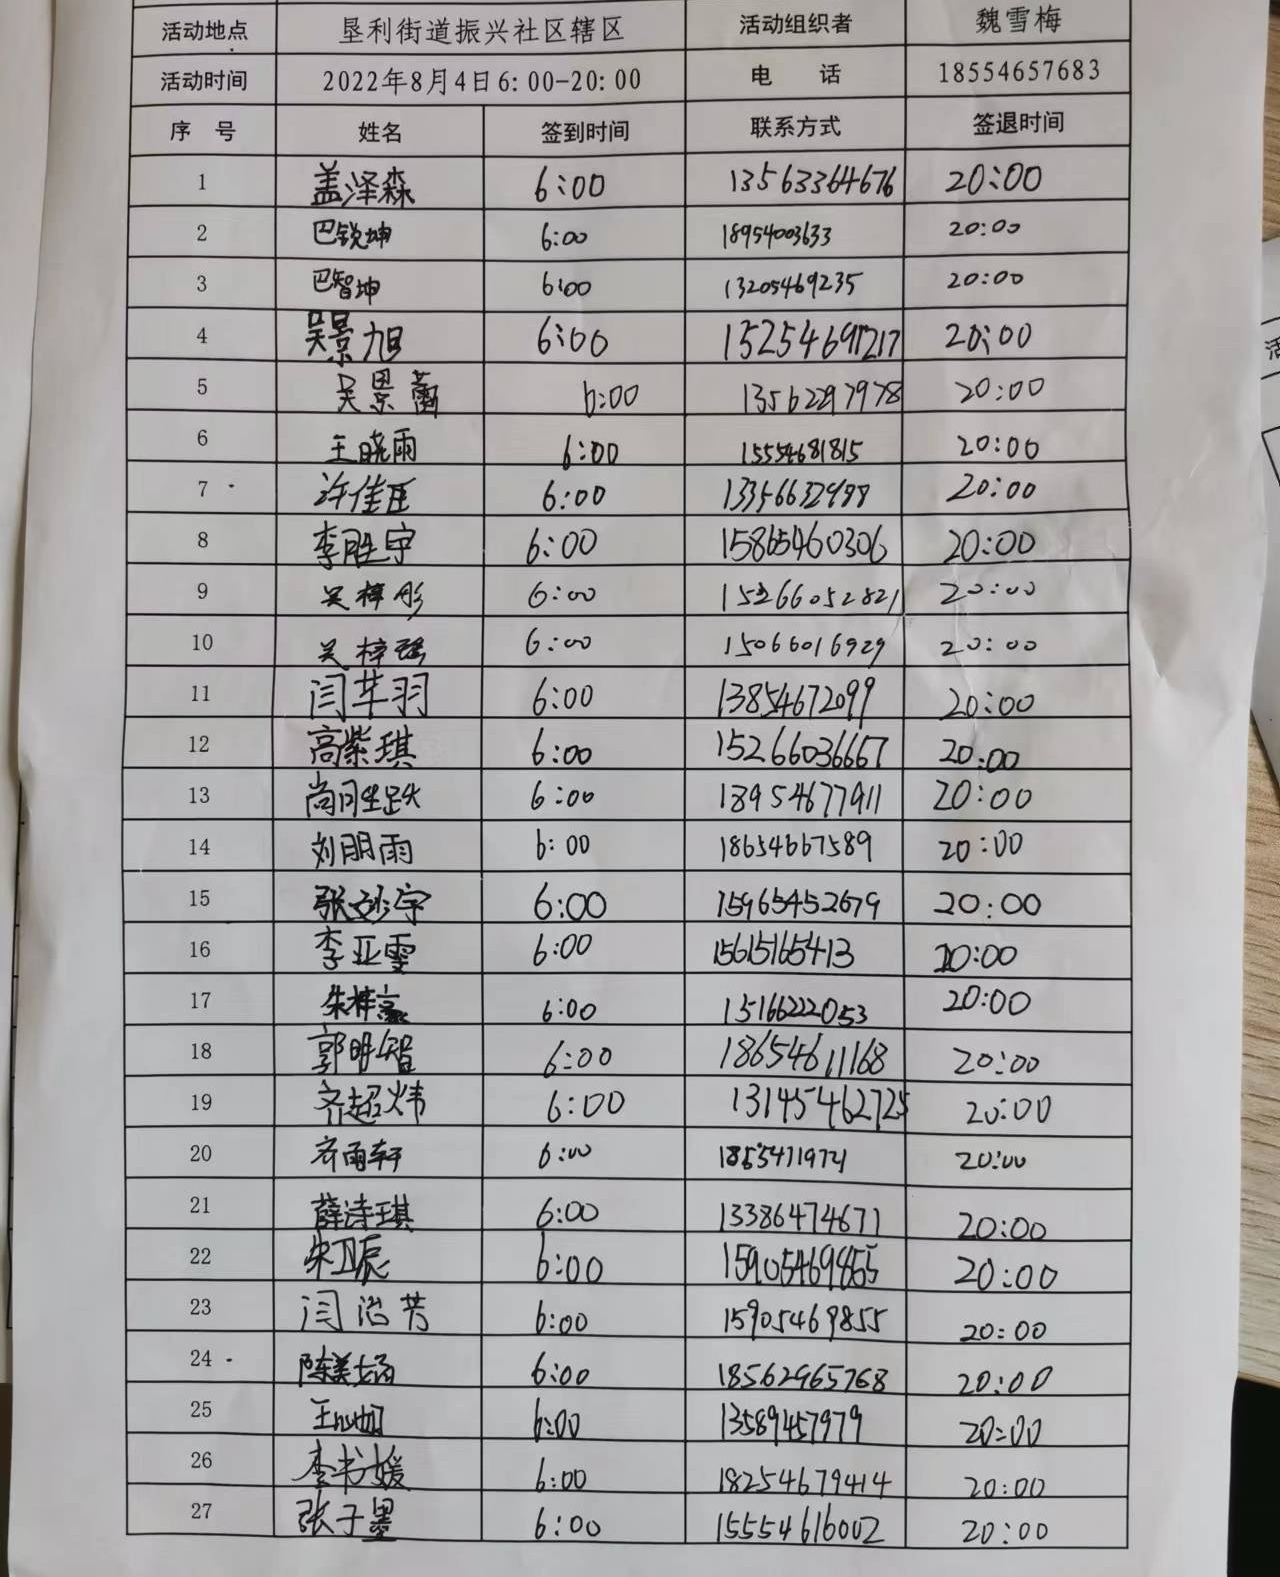 活动地点 垦利街道振兴社区辖区 活动组织者 魏雪梅
活动时间 2022年8月4日6:00-20:00 电 话 18554657683
序 号 姓名 签到时间 联系方式 签退时间
1 盖泽森 6:00 13563364676 20:00
2 巴锐坤 6:00 18954003633 20:00
3 巴智坤 6:00 13205469235 20:00
4 吴景旭 6:00 15254691217 20:00
5 吴景 6:00 13562297978 20:00
6 王晓雨 6:00 15554681815 20:00
7 许佳臣 6:00 20:00
8 李胜宇 6:00 15865460306 20:00
9 吴梓彤 6:00 15266052821 20:00
10 吴梓 6:00 15066016929 20:00
11 闫芊羽 6:00 13854672099 20:00
12 高紫琪 6:00 15266036667 20:00
13 尚 6:00 18954677911 20:00
14 刘朋雨 6:00 18654667589 20:00
15 张妙宇 6:00 15965452679 20:00
16 李亚雯 6:00 15615165413 20:00
17 朱梓 6:00 15166222053 20:00
18 郭明智 6:00 18654611168 20:00
19 齐超炜 6:00 13145462725 20:00
20 齐雨轩 6:00 20:00
21 薛诗琪 6:00 13386474671 20:00
22 朱卫辰 6:00 15905469855 20:00
23 闫浩芳 6:00 15905469855 20:00
24 陈美 6:00 18562965768 20:00
25 王心如 6:00 13589457979 20:00
26 李书媛 6:00 18254679414 20:00
27 张子墨 6:00 15554616002 20:00